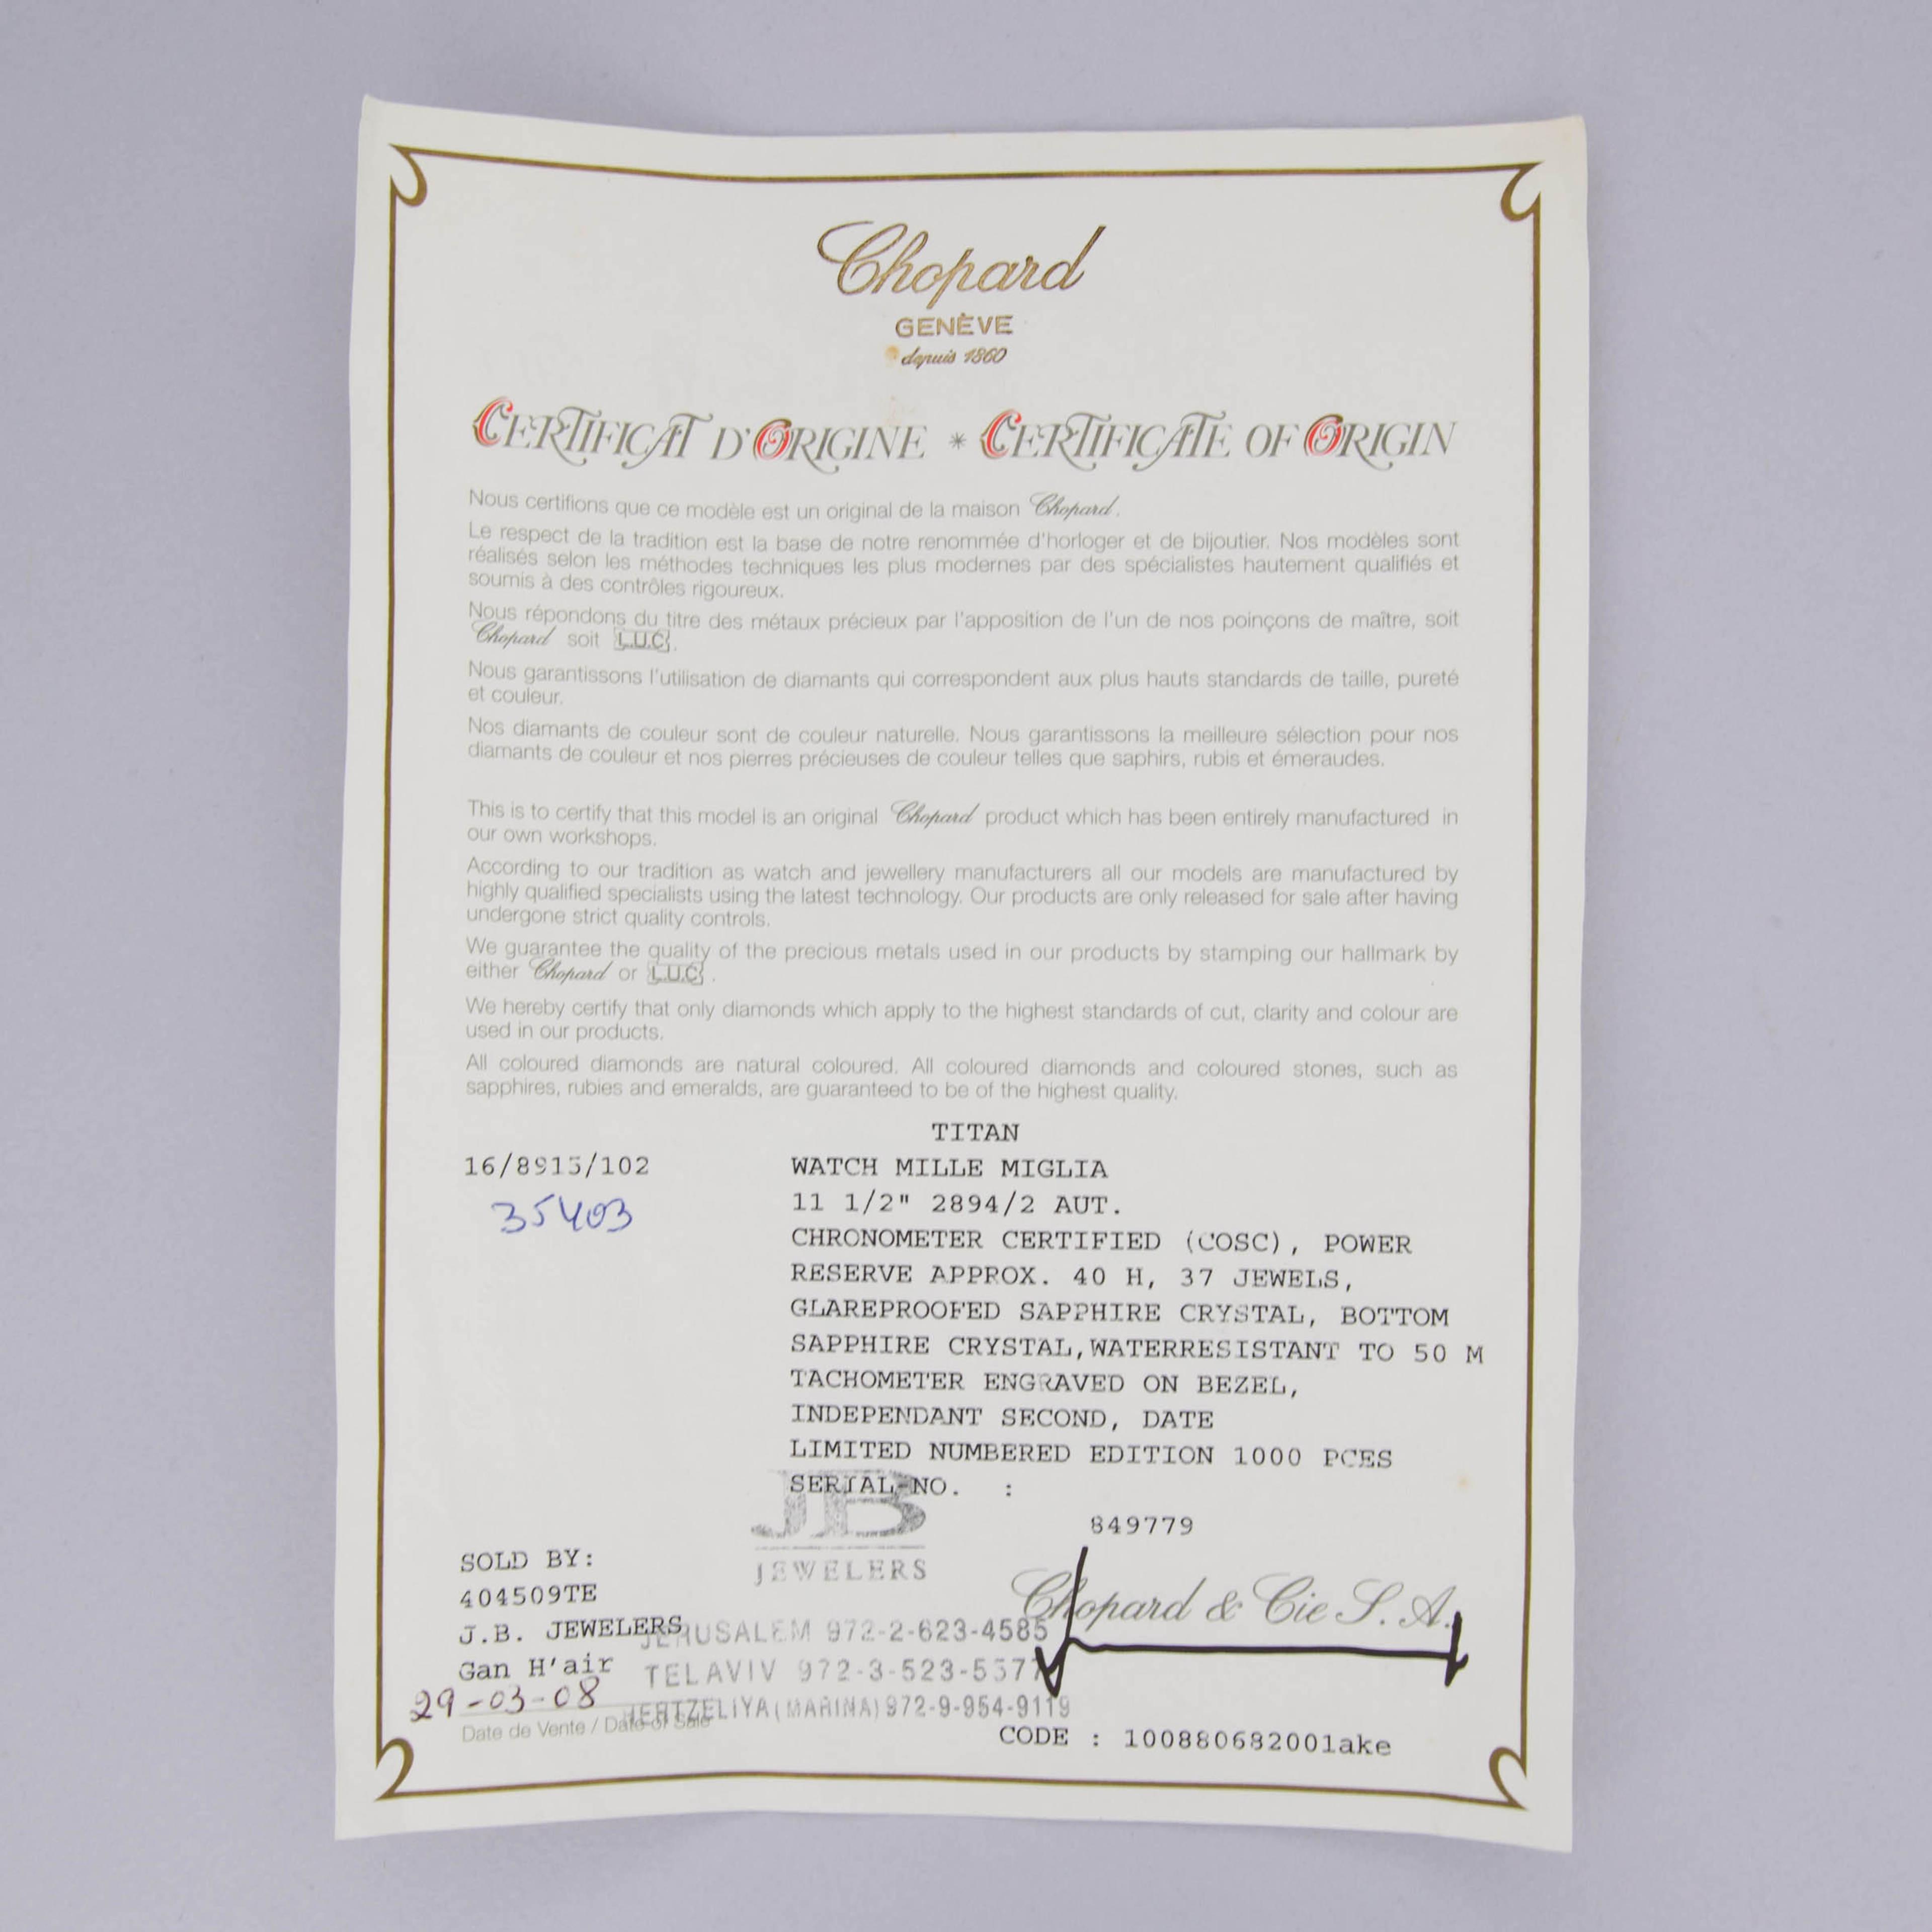 Chopard
GENÈVE
depuis 1860
CERTIFICAT D'ORIGINE * CERTIFICATE OF ORIGIN
Nous certifions que ce modèle est un original de la maison Chopard.
Le respect de la tradition est la base de notre renommée d'horloger et de bijoutier. Nos modèles sont
réalisés selon les méthodes techniques les plus modernes par des spécialistes hautement qualifiés et
soumis à des contrôles rigoureux.
Nous répondons du titre des métaux précieux par l'apposition de l'un de nos poinçons de maître, soit
Chopard soit L.U.C.
Nous garantissons l'utilisation de diamants qui correspondent aux plus hauts standards de taille, pureté
et couleur.
Nos diamants de couleur sont de couleur naturelle. Nous garantissons la meilleure sélection pour nos
diamants de couleur et nos pierres précieuses de couleur telles que saphirs, rubis et émeraudes.
This is to certify that this model is an original Chopard product which has been entirely manufactured in
our own workshops.
According to our tradition as watch and jewellery manufacturers all our models are manufactured by
highly qualified specialists using the latest technology. Our products are only released for sale after having
undergone strict quality controls.
We guarantee the quality of the precious metals used in our products by stamping our hallmark by
either Chopard or L.U.C.
We hereby certify that only diamonds which apply to the highest standards of cut, clarity and colour are
used in our products.
All coloured diamonds are natural coloured. All coloured diamonds and coloured stones, such as
sapphires, rubies and emeralds, are guaranteed to be of the highest quality.
TITAN
16/8915/102 WATCH MILLE MIGLIA
35403 11 1/2" 2894/2 AUT.
CHRONOMETER CERTIFIED (COSC), POWER
RESERVE APPROX. 40 H, 37 JEWELS,
GLAREPROOFED SAPPHIRE CRYSTAL, BOTTOM
SAPPHIRE CRYSTAL,WATERRESISTANT TO 50 M
TACHOMETER ENGRAVED ON BEZEL,
INDEPENDANT SECOND, DATE
LIMITED NUMBERED EDITION 1000 PCES
SERIAL NO. :
849779
JB
JEWELERS
SOLD BY:
404509TE
Chopard & Cie S.A.
J.B. JEWELERS
JERUSALEM 972-2-623-4585
Gan H'air
TELAVIV 972-3-523-557
29-03-08
HERTZELIYA (MARINA) 972-9-954-9119
Date de Vente / Date of Sale
CODE : 100880682001ake